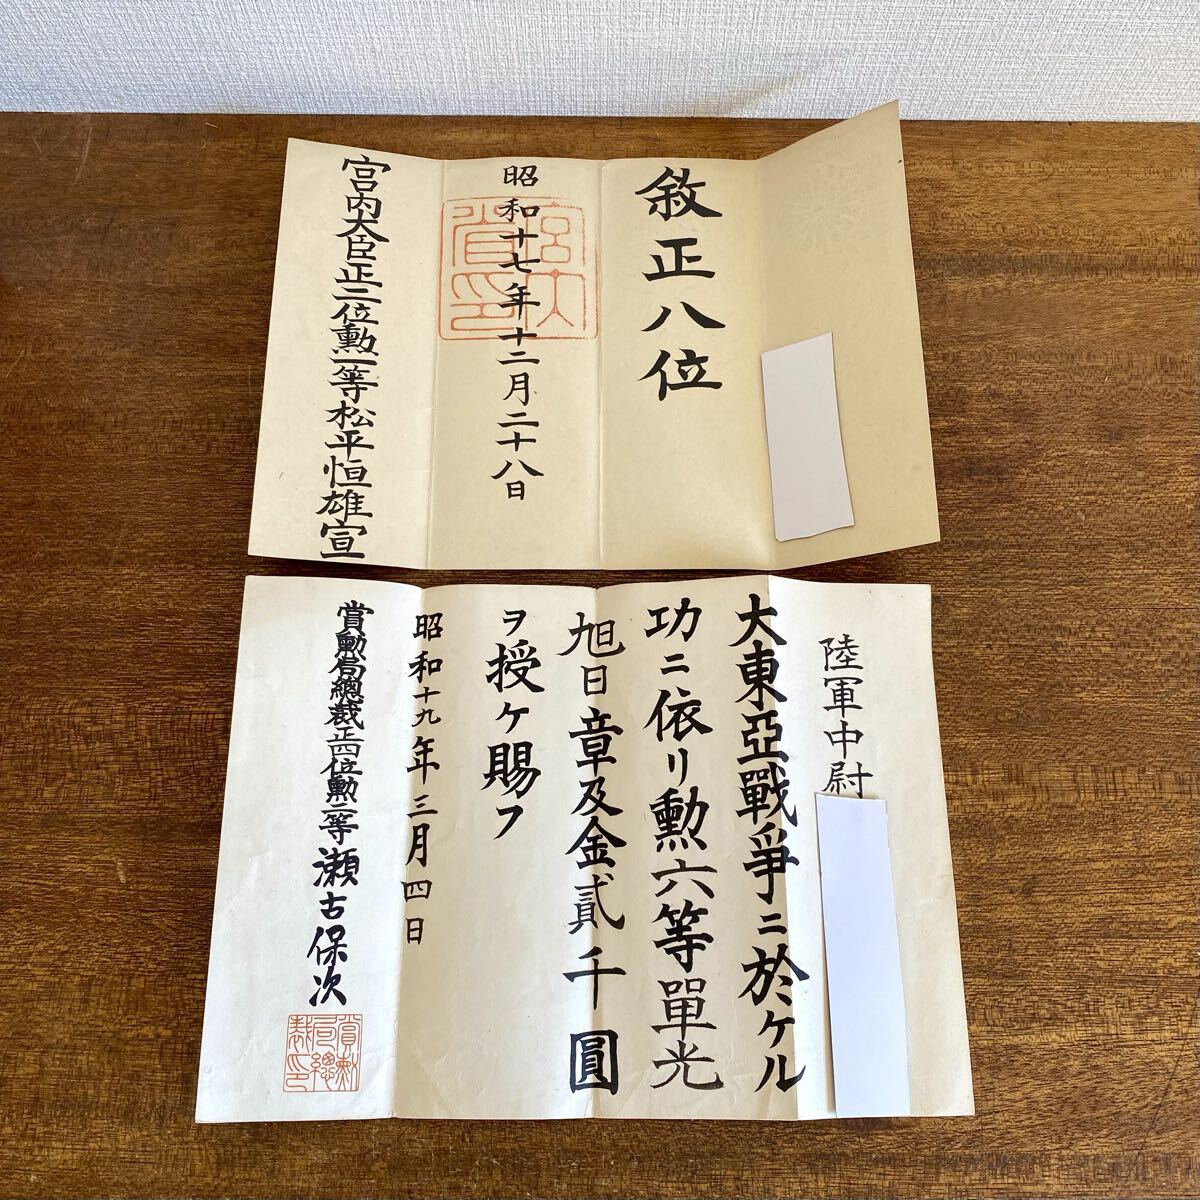 敘正八位
昭和十七年十二月二十八日
宮内省印
宮内大臣正三位勲一等松平恒雄宣
陸軍中尉
大東亞戰爭ニ於ケル
功ニ依リ勲六等單光
旭日章及金貳千圓
ヲ授ケ賜フ
昭和十九年三月四日
賞勲局總裁正四位勲二等瀬古保次
賞勲局總裁印